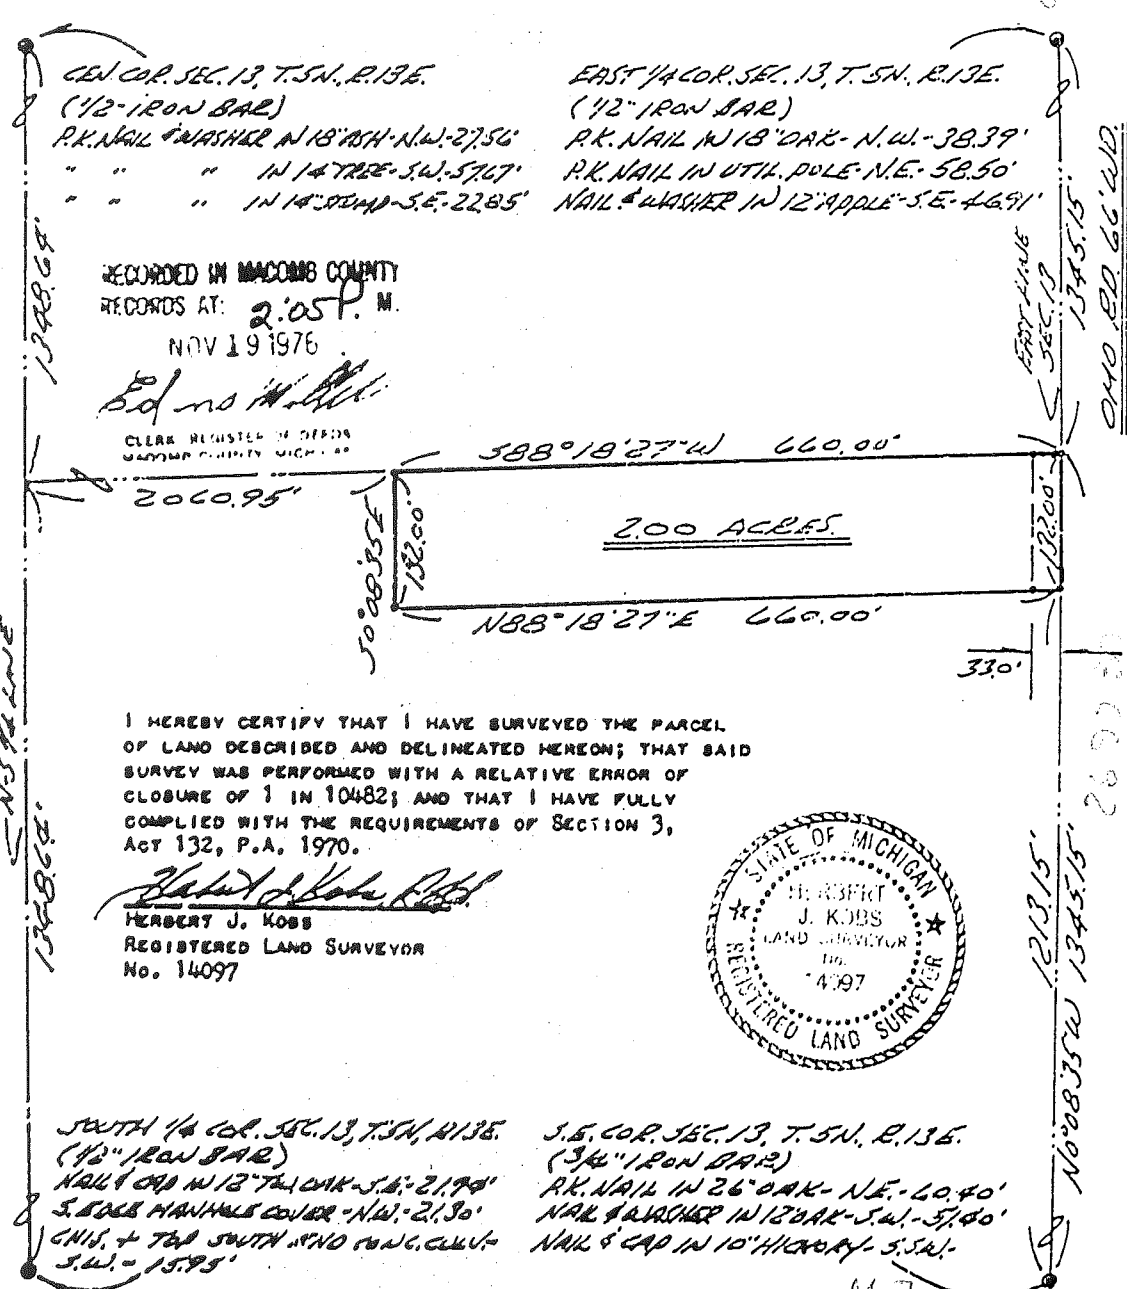 CEN. COR. SEC. 13, T.5N., R.13E.
(1/2" IRON BAR)
P.K. NAIL & WASHER IN 18" ASH - N.W. - 27.56'
" " " IN 14" TREE - S.W. - 57.67'
" " " IN 14" STUMP - S.E. - 22.85'
EAST 1/4 COR. SEC. 13, T.5N., R.13E.
(1/2" IRON BAR)
P.K. NAIL IN 18" OAK - N.W. - 38.39'
P.K. NAIL IN UTIL. POLE - N.E. - 58.50'
NAIL & WASHER IN 12" APPLE - S.E. - 46.91'
1348.64'
EAST LINE
SEC. 13
1345.15'
OMO RD. 66' WD.
RECORDED IN MACOMB COUNTY
RECORDS AT: 2:05 P. M.
NOV 19 1976
CLERK REGISTER OF DEEDS
MACOMB COUNTY, MICHIGAN
S88°18'27"W 660.00'
2060.95'
S0°08'35"E
132.00'
2.00 ACRES.
132.00'
N88°18'27"E 660.00'
33.0'
N-S 1/4 LINE
1348.64'
I HEREBY CERTIFY THAT I HAVE SURVEYED THE PARCEL
OF LAND DESCRIBED AND DELINEATED HEREON; THAT SAID
SURVEY WAS PERFORMED WITH A RELATIVE ERROR OF
CLOSURE OF 1 IN 10482; AND THAT I HAVE FULLY
COMPLIED WITH THE REQUIREMENTS OF SECTION 3,
ACT 132, P.A. 1970.
Herbert J. Kobs R.L.S.
HERBERT J. KOBS
REGISTERED LAND SURVEYOR
No. 14097
STATE OF MICHIGAN
HERBERT
J. KOBS
LAND SURVEYOR
No.
14097
REGISTERED LAND SURVEYOR
1213.15'
N0°08'35"W 1345.15'
SOUTH 1/4 COR. SEC. 13, T.5N, R13E.
(1/2" IRON BAR)
NAIL & CAP IN 12" OAK - S.E. - 21.94'
S. EDGE MANHOLE COVER - N.W. - 21.30'
CHIS. + TOP SOUTH END CONC. CULV. -
S.W. - 15.95'
S.E. COR. SEC. 13, T. 5N., R.13E.
(3/4" IRON BAR)
P.K. NAIL IN 26" OAK - N.E. - 60.40'
NAIL & WASHER IN 12" OAK - S.W. - 51.40'
NAIL & CAP IN 10" HICKORY - S.S.W. -